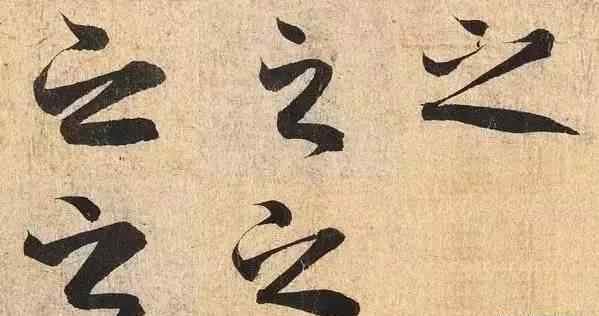 之之之
之之